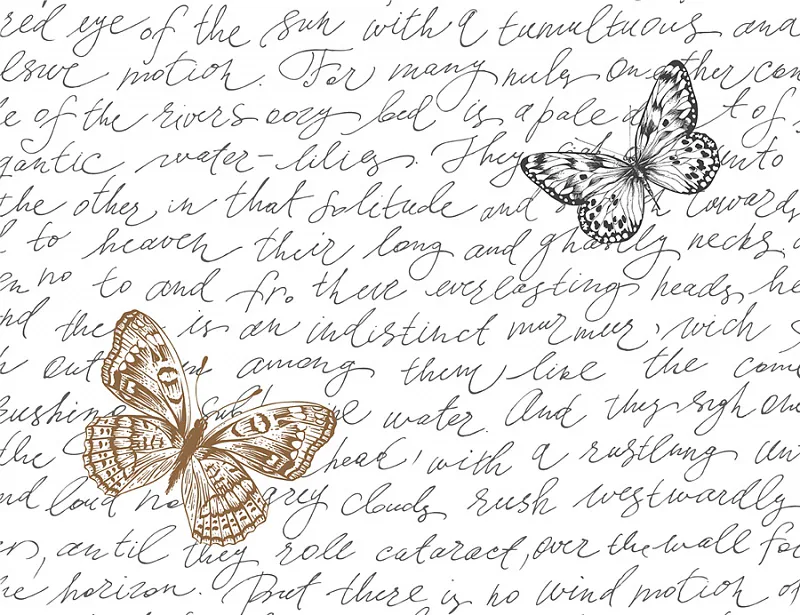 red eye of the sun with a tumultuous and
lsive motion. For many miles on other con
le of the rivers oozy bed is a pale d t of
gantic water-lilies. They sigh unto
the other in that solitude and towards
to heaven their long and ghastly necks.
en no to and fro their everlasting heads he
nd the is an indistinct murmur, wich
h out among them like the come
Rushing sub ne water. And they sigh one
the head, with a rustling un
nd loud no grey clouds rush westwardly
er, until they role cataract, over the wall fo
he horizon. But there is no wind motion of